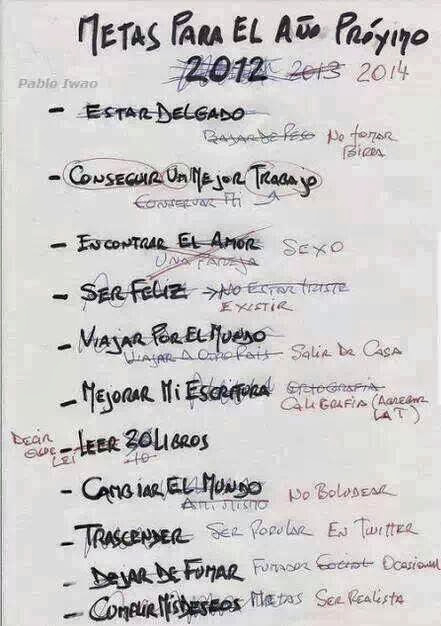 METAS PARA EL AÑO PRÓXIMO
2012 2013 2014
Pablo Iwao
- ESTAR DELGADO
BAJAR DE PESO NO TOMAR BIRRA
- CONSEGUIR UN MEJOR TRABAJO
CONSERVAR MI
- ENCONTRAR EL AMOR SEXO
UNA PAREJA
- SER FELIZ → NO ESTAR TRISTE
EXISTIR
- VIAJAR POR EL MUNDO
VIAJAR A OTRO PAÍS SALIR DE CASA
- MEJORAR MI ESCRITURA ORTOGRAFIA
CALIGRAFIA (AGREGAR LA T)
DECIR QUE LEI - LEER 20 LIBROS
10
- CAMBIAR EL MUNDO NO BOLUDEAR
A MI MISMO
- TRASCENDER SER POPULAR EN TWITTER
- DEJAR DE FUMAR FUMADOR SOCIAL OCASIONAL
- CUMPLIR MIS DESEOS METAS SER REALISTA